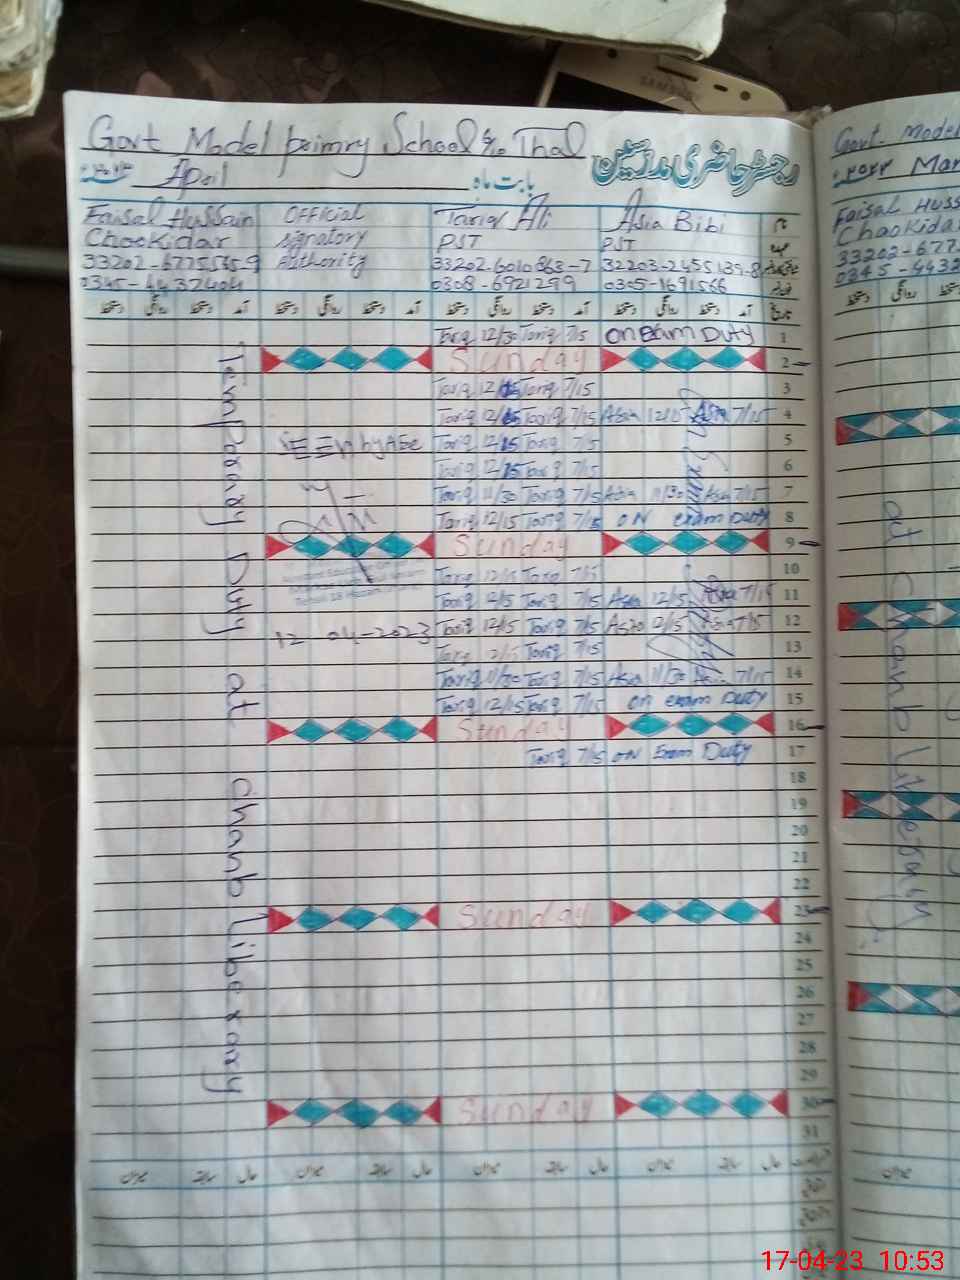 SAMSUNG
Govt Model primry School %. Thal
رجسٹر حاضری مدرسین
April بابت ماہ
Faisal Hussain Official Tariq Ali Asia Bibi
Chaokidar signatory PST PST
33202-6775535-9 Authority 33202-6010863-7 32203-2455139-8
0345-4437404 0308-6921299 0305-1691566
دستخط روانگی دستخط آمد دستخط روانگی دستخط آمد دستخط روانگی دستخط آمد دستخط روانگی دستخط آمد تاریخ
Tariq 12/30 Tariq 7/15 on Exam Duty 1
Sunday 2
Tariq 12/15 Tariq 7/15 3
Tariq 12/15 Tariq 7/15 Asia 12/15 Asia 7/15 4
SEEN by AEO Tariq 12/15 Tariq 7/15 5
Tariq 12/15 Tariq 7/15 6
Tariq 11/30 Tariq 7/15 Asia 11/30 Asia 7/15 7
Tariq 12/15 Tariq 7/15 ON exam Duty 8
Sunday 9
Tariq 12/15 Tariq 7/15 10
Tariq 12/15 Tariq 7/15 Asia 12/15 Asia 7/15 11
12-04-2023 Tariq 12/15 Tariq 7/15 Asia 12/15 Asia 7/15 12
Tariq 12/15 Tariq 7/15 13
Tariq 11/30 Tariq 7/15 Asia 11/30 Asia 7/15 14
Tariq 12/15 Tariq 7/15 on exam Duty 15
Sunday 16
Tariq 7/15 ON Exam Duty 17
18
19
20
21
22
Sunday 23
24
25
26
27
28
29
Sunday 30
31
Temparary Duty at Chanb liberary
میزان سابقہ حال میزان سابقہ حال میزان سابقہ حال میزان سابقہ حال
Govt. Model
۲۰۲۳ Mar
Faisal Huss
Chaokidar
33202-677
0345-443
دستخط روانگی
at Chanb liberary
میزان
17-04-23 10:53